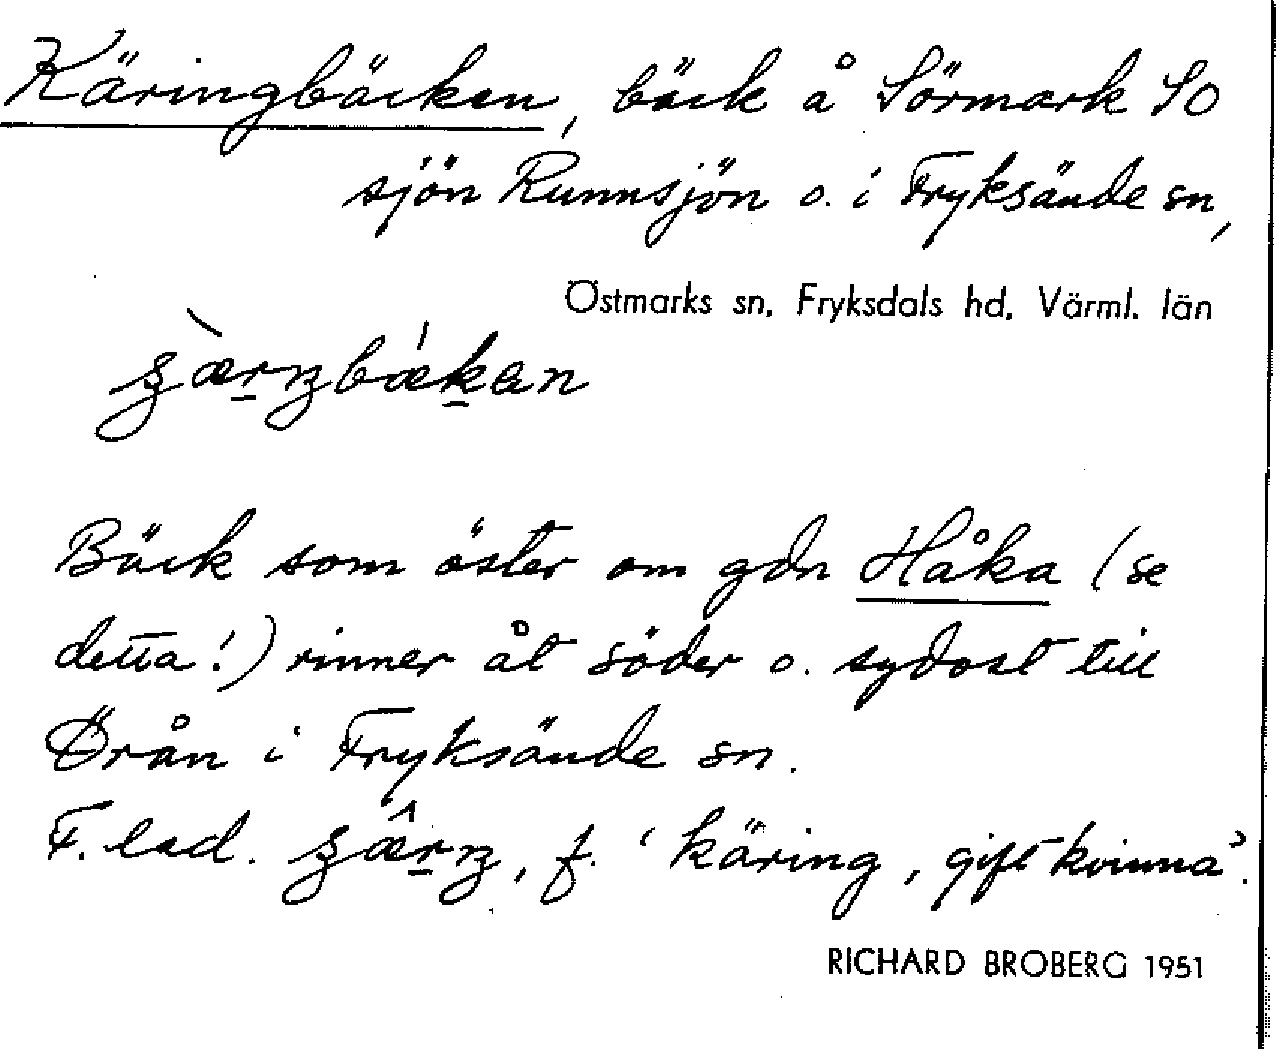 Käringbäcken, bäck å Sörmark SO
sjön Runnsjön o. i Fryksände sn,
Östmarks sn, Fryksdals hd, Värml. län
Bäck som öster om gdn Håka (se
detta!) rinner åt söder o. sydost till
Örån i Fryksände sn.
F. led. , f. 'käring, gift kvinna'.
RICHARD BROBERG 1951